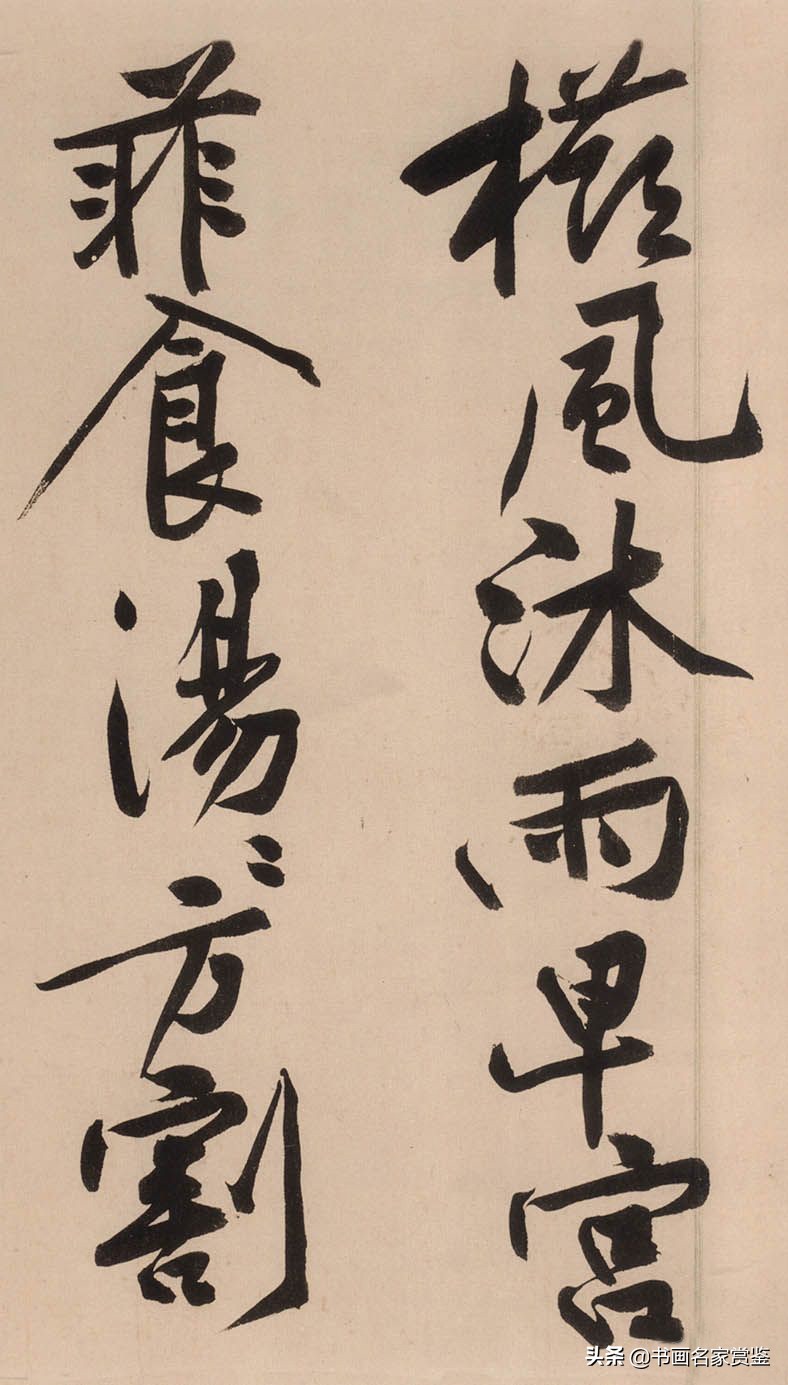 櫛風沐雨卑宮
菲食湯〻方割
头条 @书画名家赏鉴